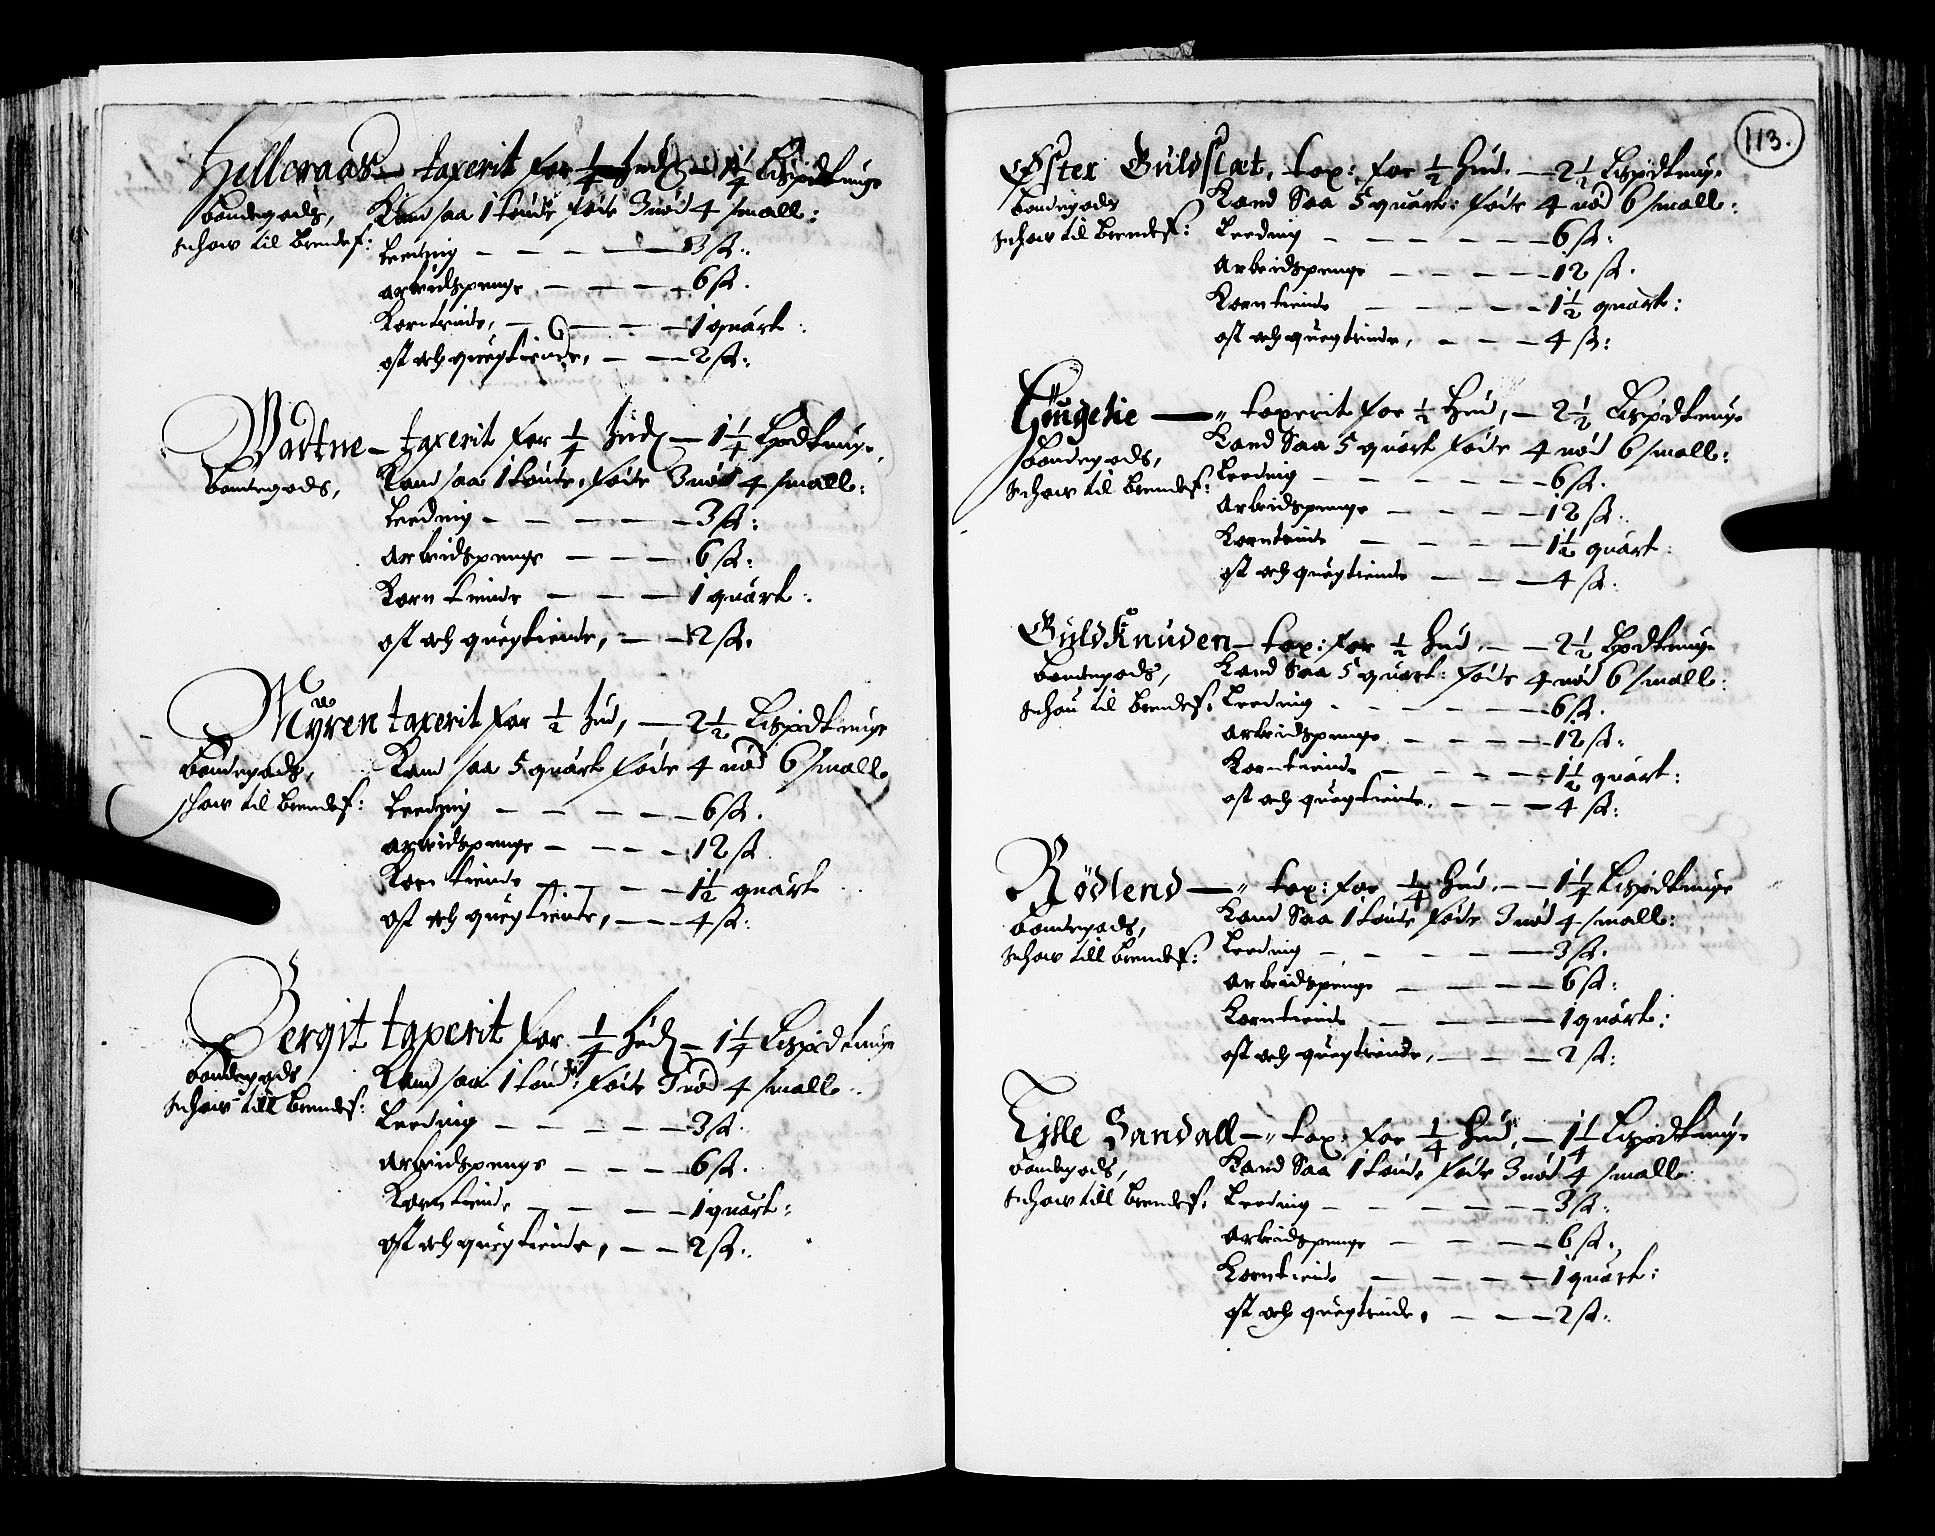 Hilleraas taxerit for 1/4 hud — 1 1/4 Lispdtunge
bondegods, Kand saa 1 tønde føde 3 nød 4 smalle:
schow til brendef: Leeding — — — — 3 sk:
Arbeidspenge — — — — 6 sk.
Korntiende, — — — — 1 quart:
ost och quegtiende, — — 2 sk:
Vartne — taxerit for 1/4 hud — 1 1/4 Lispdtunge.
bondegods, Kand saa 1 tønde, føde 3 nød 4 smalle:
Leeding — — — — 3 sk:
Arbeidspenge — — — 6 sk:
Korn tiende — — — 1 quart:
ost och quegtiende, — — 2 sk.
Myren taxerit for 1/2 hud, — 2 1/2 Lispdtunge
bondegods, Kand saa 5 quart føde 4 nød 6 smalle
schow til brendef: Leeding — — — — 6 sk.
Arbeidspenge — — — — 12 sk
Korn tiende — — — — 1 1/2 quart
ost och quegtiende, — — 4 sk:
Bergit taxerit for 1/4 hud — 1 1/4 Lispdtunge
bondegods Kand saa 1 tønde føde 3 nød 4 smalle.
schow till brendef: Leeding — — — — 3 sk.
Arbeidspenge — — — — 6 sk.
Korntiende — — — — 1 quart:
Ost och quegtiende, — — 2 sk.
113.
Øster Guldslet, tax: for 1/2 hud. — 2 1/2 Lispdtunge
bondegods Kand Saa 5 quart: føde 4 nød 6 smalle:
schow til brendef: Leeding — — — — 6 sk:
Arbeidspenge — — — — 12 sk.
Korntiende — — — — 1 1/2 quart:
ost och quegtiende, — — — 4 sk:
taxerit for 1/2 hud, — 2 1/2 Lispdtunge
bondegods, Kand Saa 5 quart føde 4 nød 6 smalle:
schow til brendef: Leeding — — — — 6 sk.
Arbeidspenge — — — — 12 sk.
Korntiende — — — — 1 1/2 quart.
ost och quegtiende — — — 4 sk.
Guldknuden — tax: for 1/2 hud, — — 2 1/2 Lispdtunge
bondegods, Kand Saa 5 quart: føde 4 nød 6 smalle:
schou til brendef: Leeding — — — — 6 sk.
Arbeidspenge — — — — 12 sk:
Korntiende — — — — 1 1/2 quart:
ost och quegtiende. — — — 4 sk:
Rødlend — " tax: for 1/4 hud. — — 1 1/4 Lispdtunge
bondegods, Kand Saa 1 tønde føde 3 nød 4 smalle:
schow till brendef: Leeding — — — — 3 sk.
Arbeidspenge — — — — 6 sk:
Korntiende — — — — 1 quart:
ost och quegtiende, — — — 2 sk:
Lille Sandall — " tax: for 1/4 hud, — 1 1/4 Lispdtunge
bondegods, Kand Saa 1 tønde føde 3 nød 4 smalle
schow till brendef: Leeding — — — — 3 sk:
Arbeidspenge — — — — 6 sk:
Korntiende — — — — 1 quart:
ost och quegtiende, — — — 2 sk: